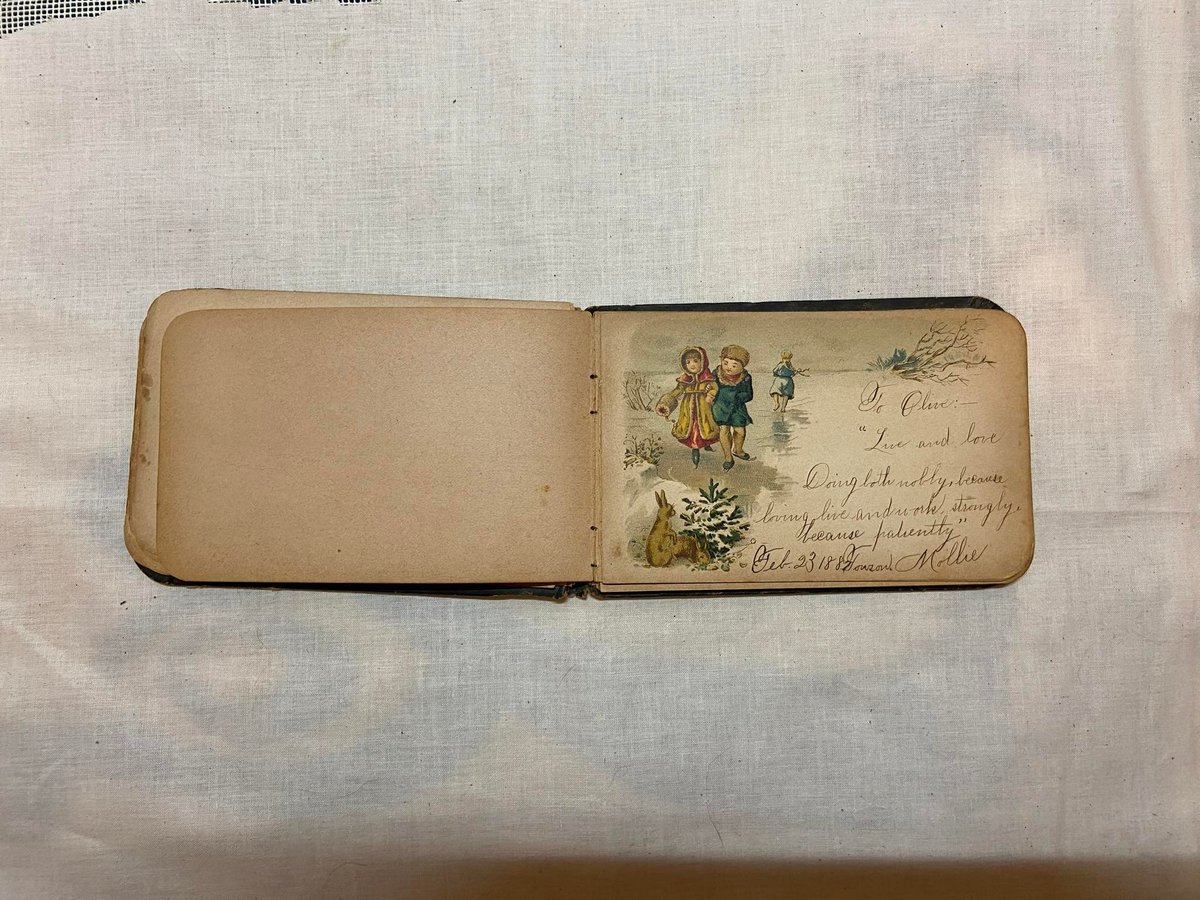 To Olive:—
"Live and love
Doing both nobly, because
loving, live and work, strongly,
because patiently"
Feb. 23 188 Mollie